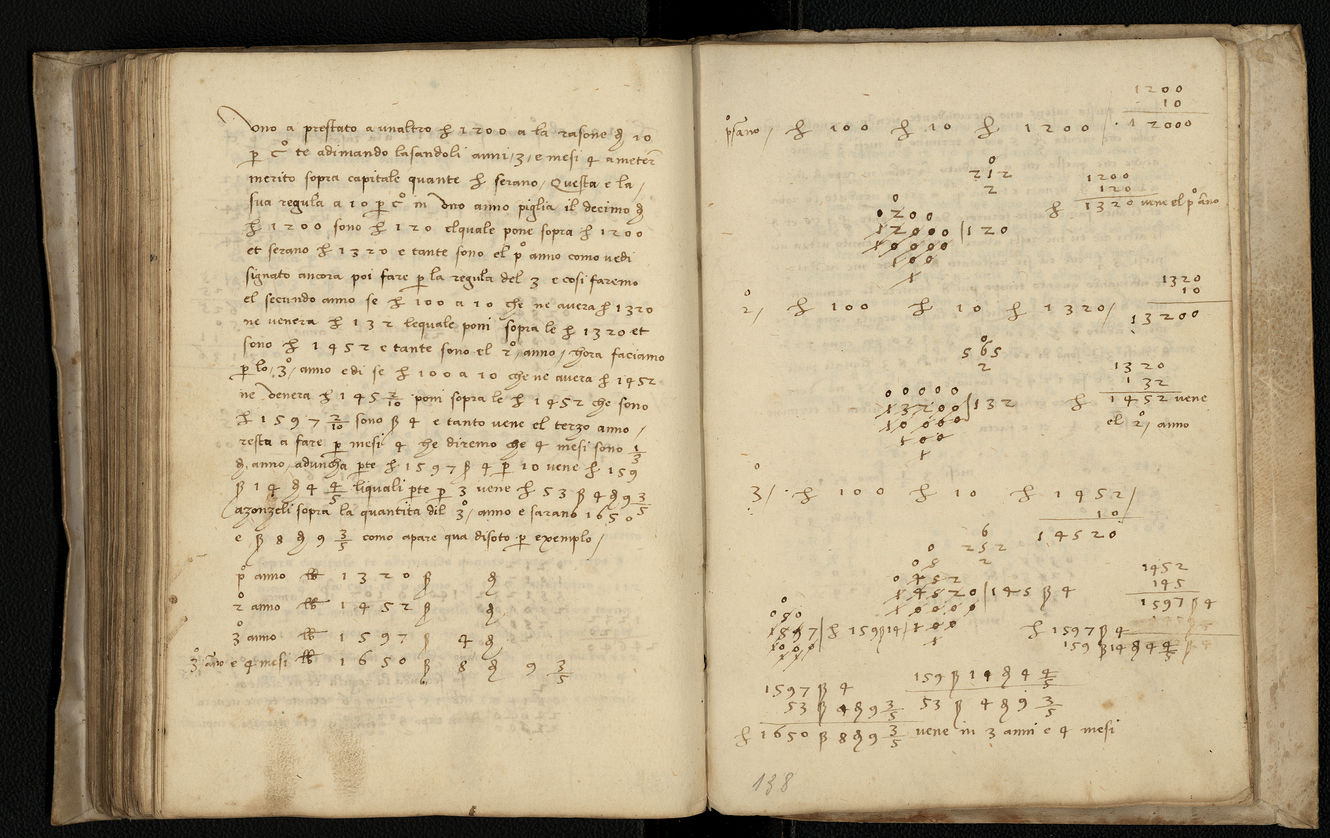 Uno a prestato a unaltro ħ 1200 a la rasone di 10
p co te adimando lasandoli anni /3/ e mesi 4 a meter
merito sopra capitale quante ħ serano / Questa e la /
sua regula a 10 p co in Uno anno piglia il decimo di
ħ 1200 sono ħ 120 elquale pone sopra ħ 1200
et serano ħ 1320 e tante sono el po anno como vedi
signato ancora poi fare p la regula del 3 e cosi faremo
el secundo anno se ħ 100 a 10 che ne avera ħ 1320
ne venera ħ 132 lequale poni sopra le ħ 1320 et
sono ħ 1452 e tante sono el 2o/ anno / hora faciamo
p lo /3o/ anno e di se ħ 100 a 10 che ne avera ħ 1452
ne Venera ħ 145 2/10 poni sopra le ħ 1452 che sono
ħ 1597 2/10 sono ß 4 e tanto vene el terzo anno /
resta a fare p mesi 4 che diremo che 4 mesi sono 1/3
di anno / aduncha pte ħ 1597 ß 4 p 10 vene ħ 159
ß 14 d 4 4/5 liquali pte p 3 vene ħ 53 ß 4 d 9 3/5
azonzeli sopra la quantita dil 3o/ anno e sarano 1650
e ß 8 d 9 3/5 como apare qua disoto p exemplo /
po anno lb 1320 ß d
2o anno lb 1452 ß d
3o anno lb 1597 ß 4 d
3o/ ano e 4 mesi lb 1650 ß 8 d 9 3/5
1200
10
po/ ano / ħ 100 ħ 10 ħ 1200 / 12000
0
212
2
1200
120
ħ 1320 vene el po ano
0
0200
12000 | 120
10000
100
1
1320
10
2o/ ħ 100 ħ 10 ħ 1320 / 13200
0
565
2
1320
132
ħ 1452 vene
el 2o/ anno
00000
13200 | 132
10000
100
1
3o/ ħ 100 ħ 10 ħ 1452 /
10
14520
6
252
2
0
05
0452
14520 | 145 ß 4
10000
100
1
1452
145
1597 ß 4
0
050
1597 | ħ 159 ß 14 /
ħ 1597 ß 4
159 ß 14 d 4 4/5
1597 ß 4
53 ß 4 d 9 3/5
ħ 1650 ß 8 d 9 3/5 vene in 3 anni e 4 mesi
159 ß 14 d 4 4/5
53 ß 4 d 9 3/5
138